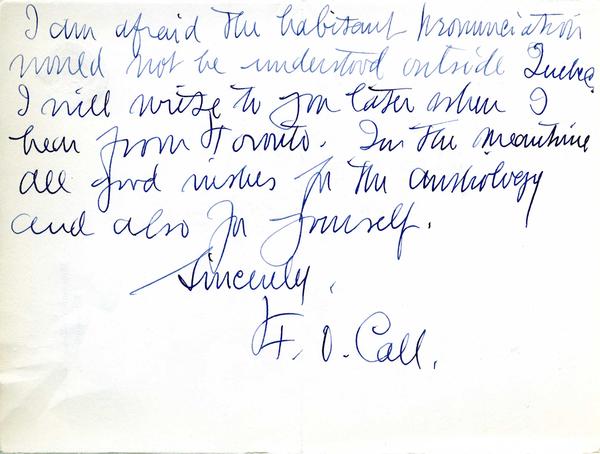 I am afraid the habitant pronunciation
would not be understood outside Quebec.
I will write to you later when I
hear from Toronto. In the meantime
all good wishes for the anthology
and also for yourself.
Sincerely,
F. O. Call.